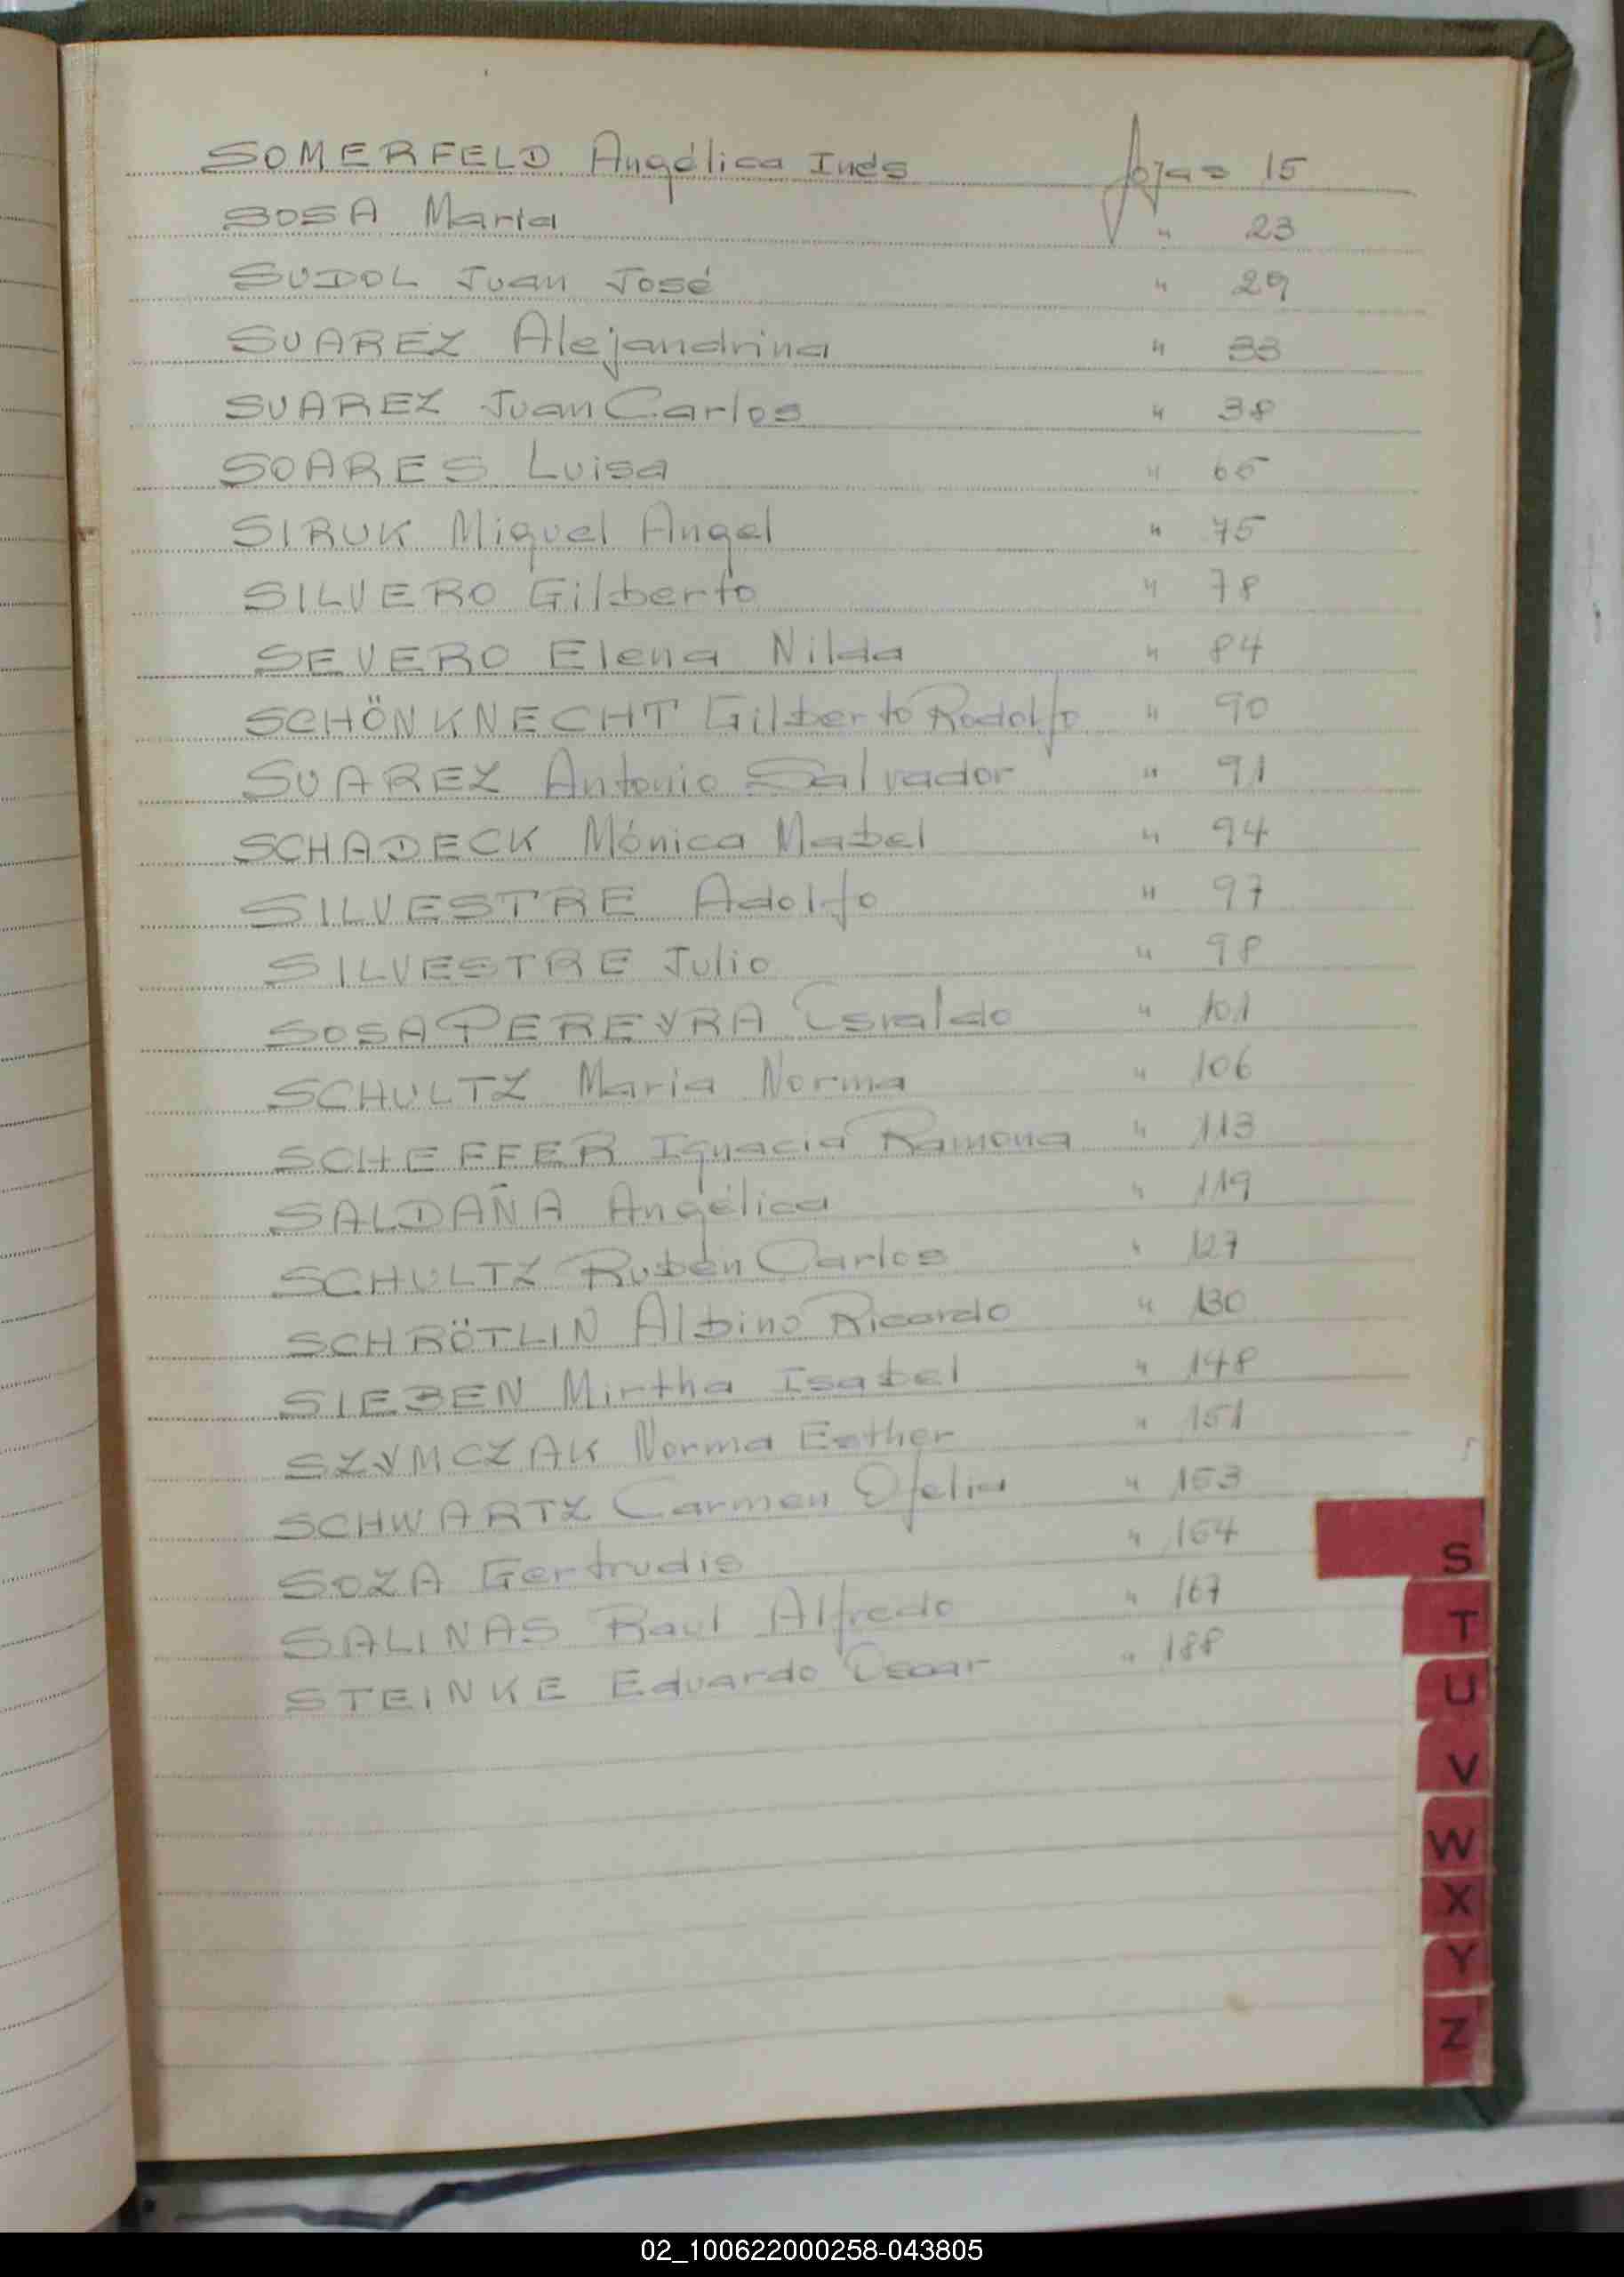 SOMERFELD Angélica Inés fojas 15
SOSA Maria " 23
SUDOL Juan José " 29
SUAREZ Alejandrina " 33
SUAREZ Juan Carlos " 38
SOARES Luisa " 65
SIRUK Miguel Angel " 75
SILVERO Gilberto " 78
SEVERO Elena Nilda " 84
SCHÖNKNECHT Gilberto Rodolfo " 90
SUAREZ Antonio Salvador " 91
SCHADECK Mónica Mabel " 94
SILVESTRE Adolfo " 97
SILVESTRE Julio " 98
SOSA PEREYRA Osvaldo " 101
SCHULTZ Maria Norma " 106
SCHEFFER Ignacia Ramona " 113
SALDAÑA Angélica " 119
SCHULTZ Rubén Carlos " 127
SCHRÖTLIN Albino Ricardo " 130
SIEBEN Mirtha Isabel " 148
SZYMCZAK Norma Esther " 151
SCHWARTZ Carmen Ofelia " 153
SOZA Gertrudis " 164
SALINAS Raul Alfredo " 167
STEINKE Eduardo Oscar " 188
S
T
U
V
W
X
Y
Z
02_100622000258-043805